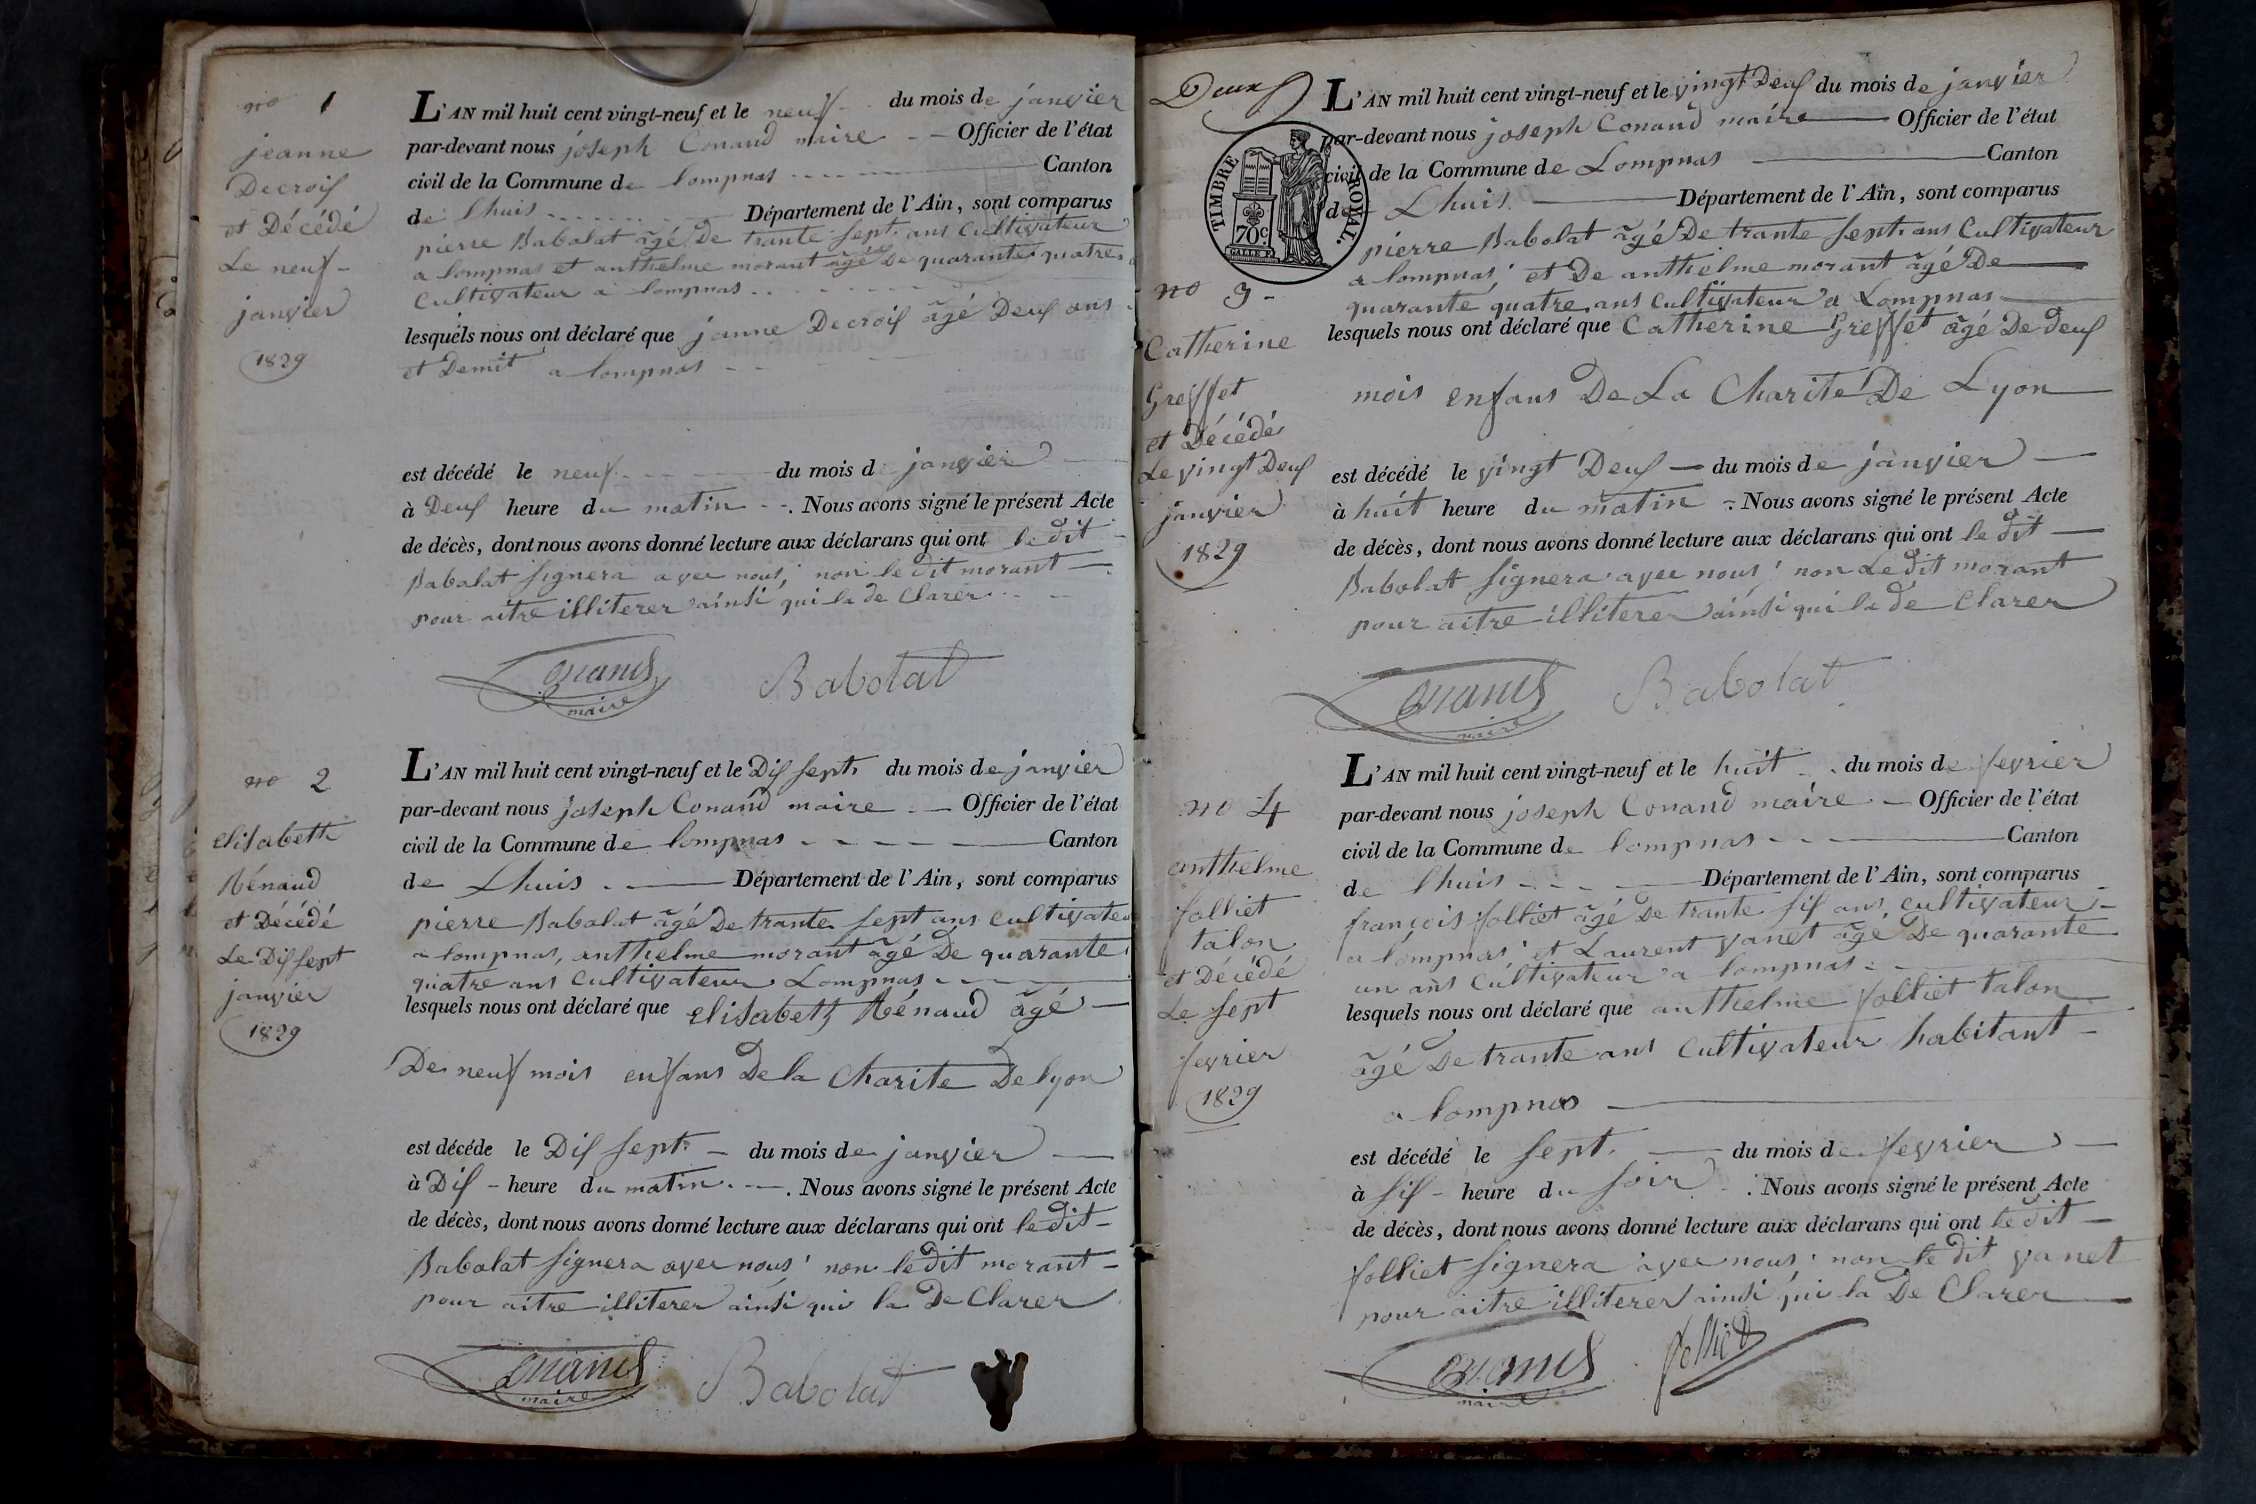 no 1
jeanne
Decroif
et Décédé
Le neuf -
janvier
1829
L'AN mil huit cent vingt-neuf et le neuf du mois de janvier
par-devant nous joseph Conand maire Officier de l'état
civil de la Commune de lompnas Canton
de lhuis Département de l'Ain, sont comparus
pierre Babolat âgé De trante sept ans Cultivateur
a lompnas et anthelme morant âgé De quarante quatre
Cultivateur a lompnas
lesquels nous ont déclaré que janne Decroif âgé Deuf ans
et Demit a lompnas
est décédé le neuf du mois de janvier
à Deuf heure du matin . Nous avons signé le présent Acte
de décès, dont nous avons donné lecture aux déclarans qui ont le dit
Babolat signera avec nous, non le dit morant
pour aitre illiterer ainsi qui la de Clarer
Conand Babolat
maire
no 2
elisabeth
Rénaud
et Décédé
Le Dif sept
janvier
1829
L'AN mil huit cent vingt-neuf et le Dif sept du mois de janvier
par-devant nous joseph Conand maire Officier de l'état
civil de la Commune de lompnas Canton
de Lhuis Département de l'Ain, sont comparus
pierre Babolat âgé De trante sept ans cultivateur
a lompnas, anthelme morant âgé De quarante
quatre ans Cultivateur Lompnas
lesquels nous ont déclaré que elisabeth Rénaud âgé
De neuf mois enfans De la Charite De lyon
est décéde le Dif sept du mois de janvier
à Dif - heure du matin . Nous avons signé le présent Acte
de décès, dont nous avons donné lecture aux déclarans qui ont le dit
Babolat signera avec nous, non le dit morant
pour aitre illiterer ainsi qui la De Clarer
Conand Babolat
maire
Deux
TIMBRE ROYAL.
70c
no 3 -
Catherine
Greffet
et Décédé
Le vingt Deuf
janvier
1829
L'AN mil huit cent vingt-neuf et le vingt Deuf du mois de janvier
par-devant nous joseph Conand maire Officier de l'état
civil de la Commune de Lompnas Canton
de Lhuis Département de l'Ain, sont comparus
pierre Babolat âgé De trante sept ans Cultivateur
a lompnas, et De anthelme morant âgé De
quarante quatre ans Cultivateur a Lompnas
lesquels nous ont déclaré que Catherine Greffet âgé De deuf
mois enfans De La Charite De Lyon
est décédé le vingt Deuf du mois de janvier
à huit heure du matin . Nous avons signé le présent Acte
de décès, dont nous avons donné lecture aux déclarans qui ont le dit
Babolat signera avec nous, non Le dit morant
pour aitre illiterer ainsi qui la de Clarer
Conand Babolat
maire
no 4
anthelme
folliet
talon
et Décédé
Le sept
fevrier
1829
L'AN mil huit cent vingt-neuf et le huit du mois de fevrier
par-devant nous joseph Conand maire Officier de l'état
civil de la Commune de lompnas Canton
de lhuis Département de l'Ain, sont comparus
françois folliet âgé De trante sif ans, cultivateur
a lompnas, et Laurent vanet âgé De quarante
un ans Cultivateur a lompnas
lesquels nous ont déclaré que anthelme folliet talon
âgé De trante ans Cultivateur habitant
a lompnas
est décédé le sept du mois de fevrier
à sif - heure du soir . Nous avons signé le présent Acte
de décès, dont nous avons donné lecture aux déclarans qui ont le dit
folliet signera avec nous, non le dit vanet
pour aitre illiterer ainsi qui la De Clarer
Conand folliet
maire